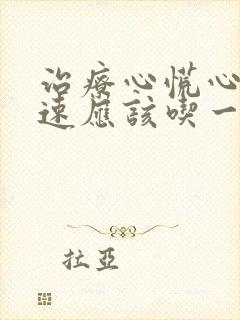 治療心慌心
速應該喫一
拉亞